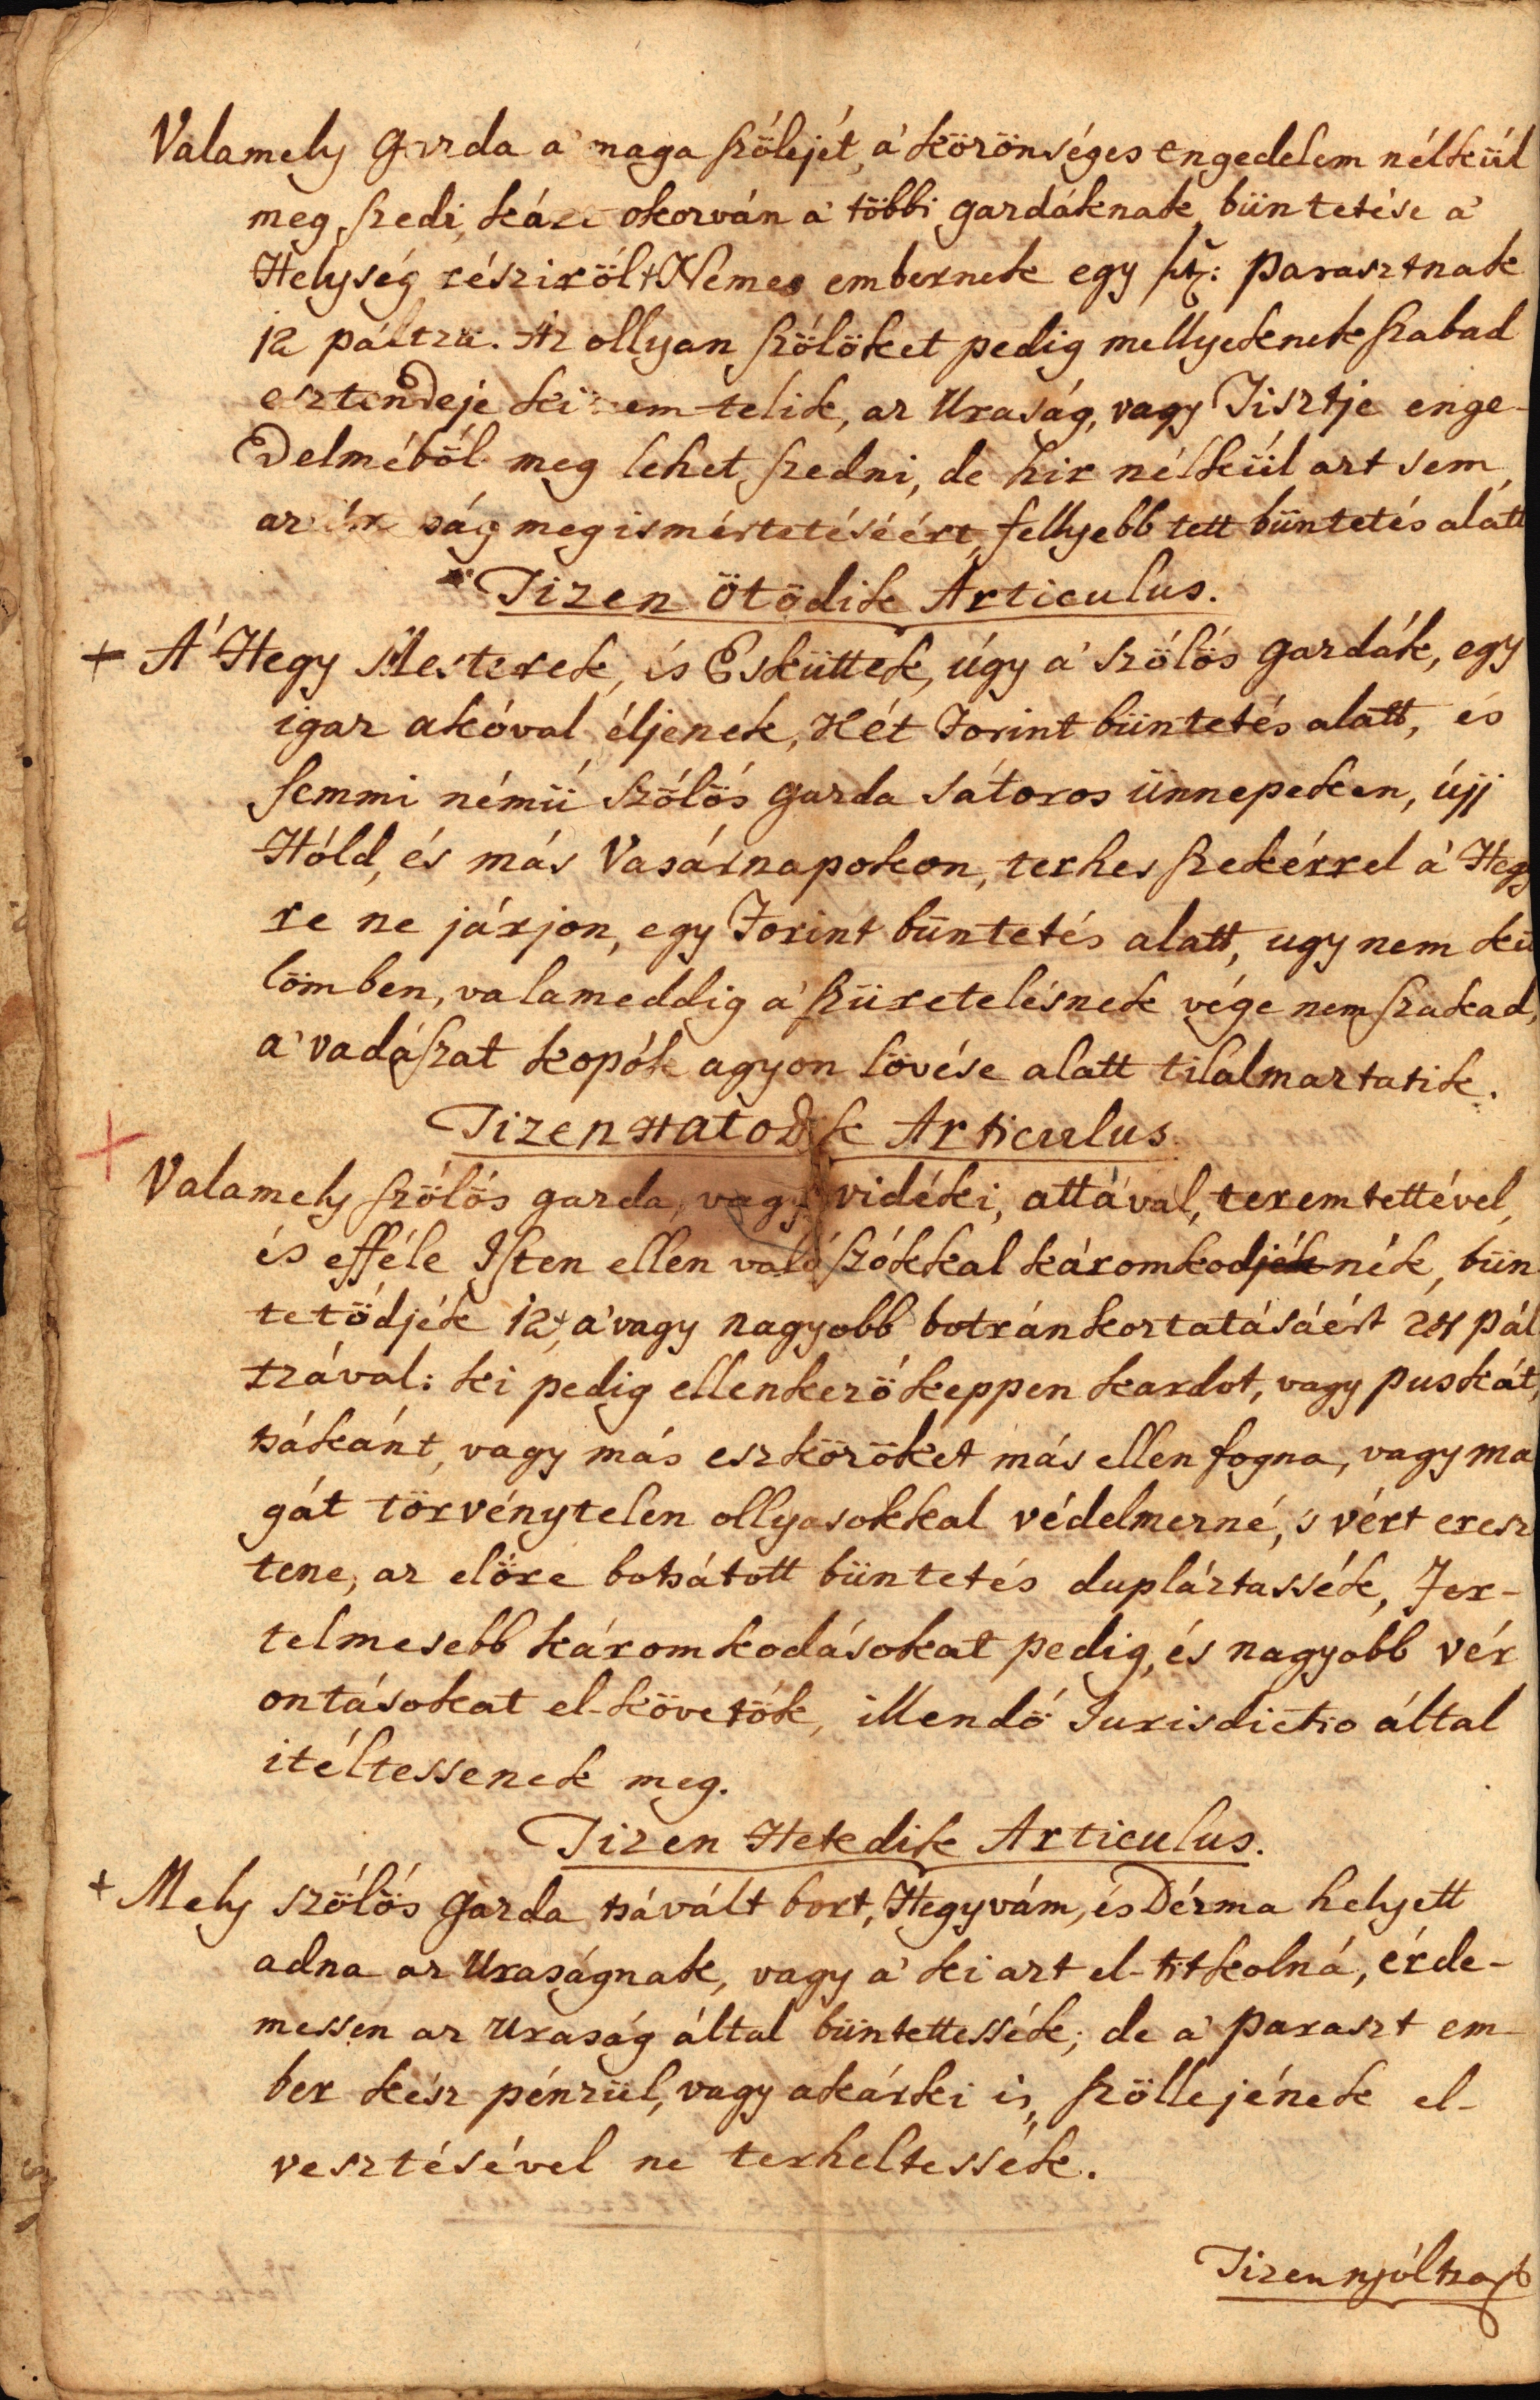 Valamely Gazda a' maga szőlejét, a' közönséges engedelem nélkül
meg szedi, kárt okozván a' többi gazdáknak, büntetése a'
Helység résziről + Nemes embernek egy frt: Parasztnak
12 páltza. Az ollyan szőlőket pedig mellyeknek szabad
esztendeje ki nem telik, az Uraság, vagy Tisztje enge-
delméből meg lehet szedni, de hir nélkül azt sem,
az ság megismértetéséért, fellyebb tett büntetés alatt
Tizen ötödik Articulus.
+ A' Hegy Mesterek, és Esküttek, úgy a' szőlős gazdák, egy
igaz akóval éljenek, Hét Forint büntetés alatt, és
semmi némü szőlős gazda sátoros ünnepeken, újj
Hóld, és más Vasárnapokon, terhes szekérrel a' Hegy
re ne járjon, egy Forint büntetés alatt, ugy nem kü
lömben, valameddig a' szüretelésnek vége nem szakad,
a' vadászat kopók agyon lövése alatt tilalmaztatik.
Tizen Hatodik Articulus.
+ Valamely szőlős gazda, vagy vidéki, attával, teremtettével,
és efféle Isten ellen való szókkal káromkodjék nék, bün
tetődjék 12, a' vagy nagyobb botránkoztatásáért 24 pál
tzával: ki pedig ellenkezőkeppen kardot, vagy puskát,
tsákánt, vagy más eszközöket más ellen fogna, vagy ma
gát törvénytelen ollyasokkal védelmezné, 's vért eresz
tene, az előre botsátott büntetés dupláztassék, Fer-
telmesebb káromkodásokat pedig, és nagyobb vér
ontásokat el-követők, illendő Jurisdictio által
itéltessenek meg.
Tizen Hetedik Articulus.
+ Mely szőlős Gazda tsávált bort, Hegyvám, és Dézma helyett
adna az Uraságnak, vagy a' ki azt el-titkolná, érde-
messen az Uraság által büntettessék; de a' Paraszt em-
ber kész pénzül, vagy akárki is, szöllejének el-
vesztésével ne terheltessék.
Tizennyóltza